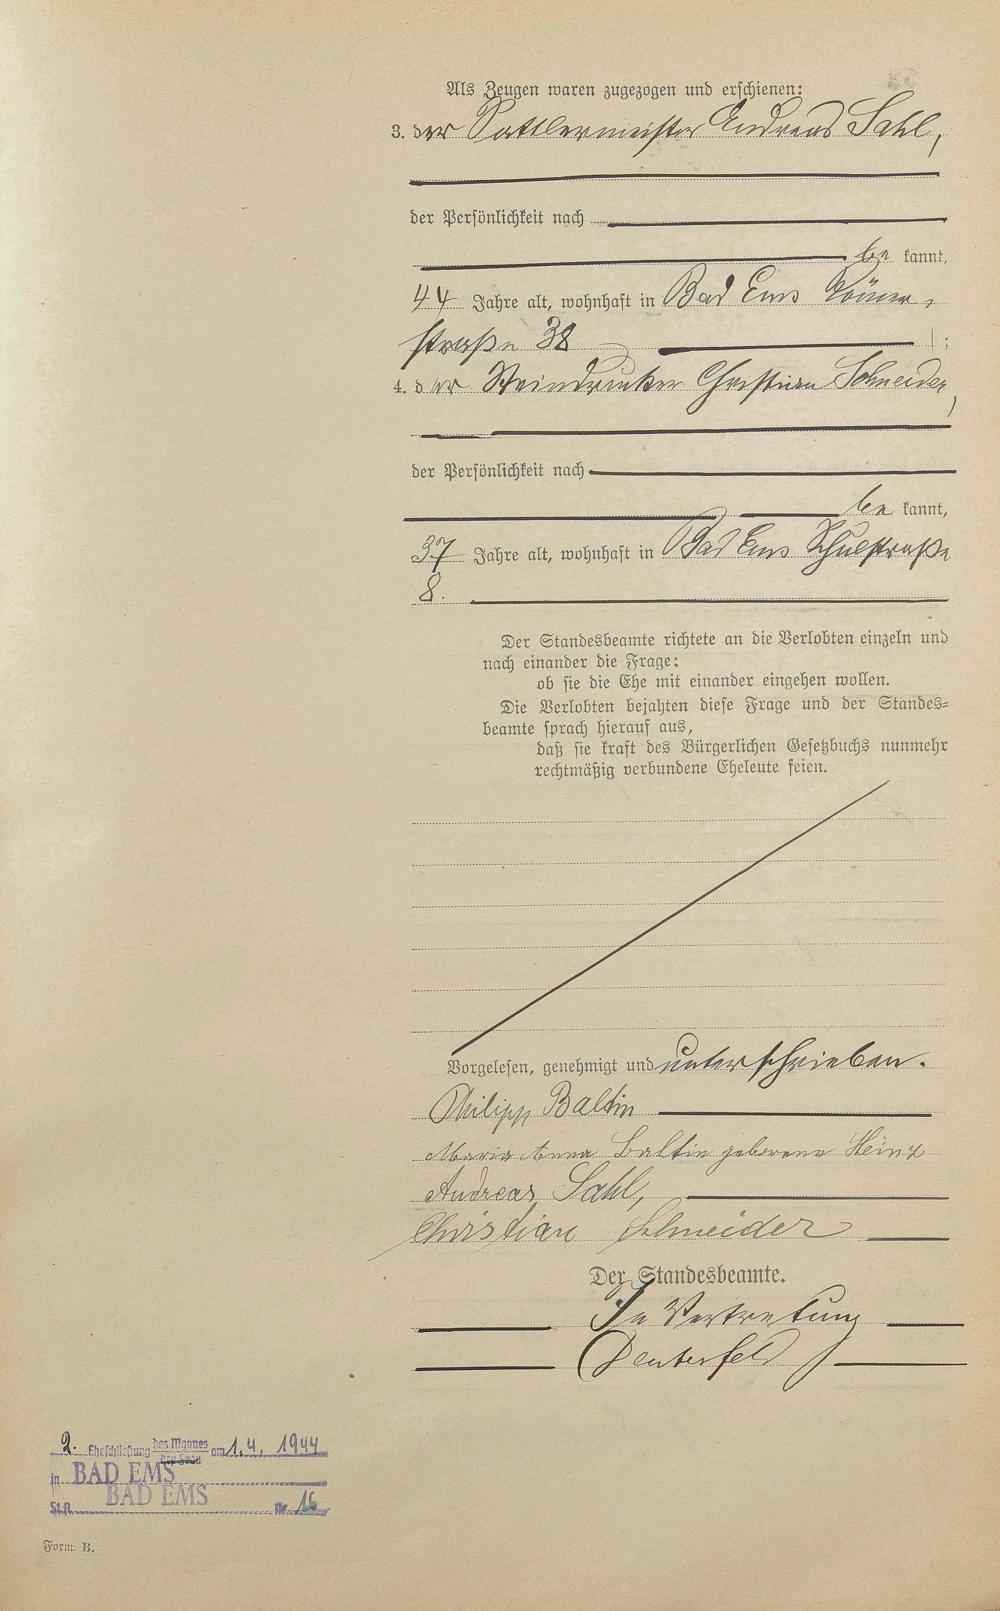 Als Zeugen waren zugezogen und erschienen:
3. der Sattlermeister Andreas Sahl,
der Persönlichkeit nach
be kannt,
44 Jahre alt, wohnhaft in Bad Ems Römer-
straße 38 ;
4. der Steindrucker Christian Schneider,
der Persönlichkeit nach
be kannt,
37 Jahre alt, wohnhaft in Bad Ems Schulstraße
8.
Der Standesbeamte richtete an die Verlobten einzeln und
nach einander die Frage:
ob sie die Ehe mit einander eingehen wollen.
Die Verlobten bejahten diese Frage und der Standes-
beamte sprach hierauf aus,
daß sie kraft des Bürgerlichen Gesetzbuchs nunmehr
rechtmäßig verbundene Eheleute seien.
Vorgelesen, genehmigt und unterschrieben.
Philipp Baltin
Maria Anna Baltin geborene Heinz
Andreas Sahl,
Christian Schneider
Der Standesbeamte.
In Vertretung
2. Eheschließung des Mannes der Frau am 1.4. 1944
in BAD EMS
St.A. BAD EMS Nr. 16
Form. B.